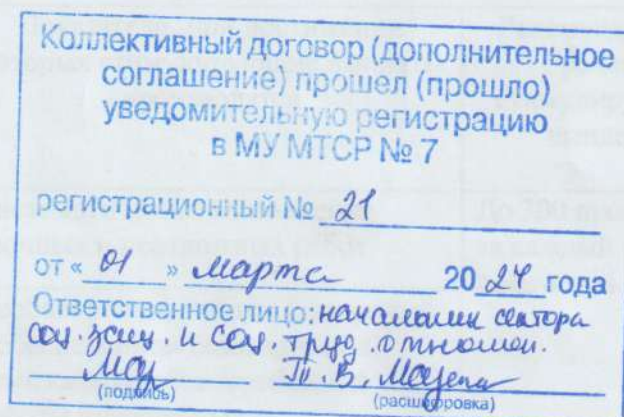 Коллективный договор (дополнительное
соглашение) прошел (прошло)
уведомительную регистрацию
в МУ МТСР № 7
регистрационный № 21
от « 01 » марта 2024 года
Ответственное лицо: начальник сектора
соц. защ. и соц. труд. отношен.
Т. В.
(подпись) (расшифровка)